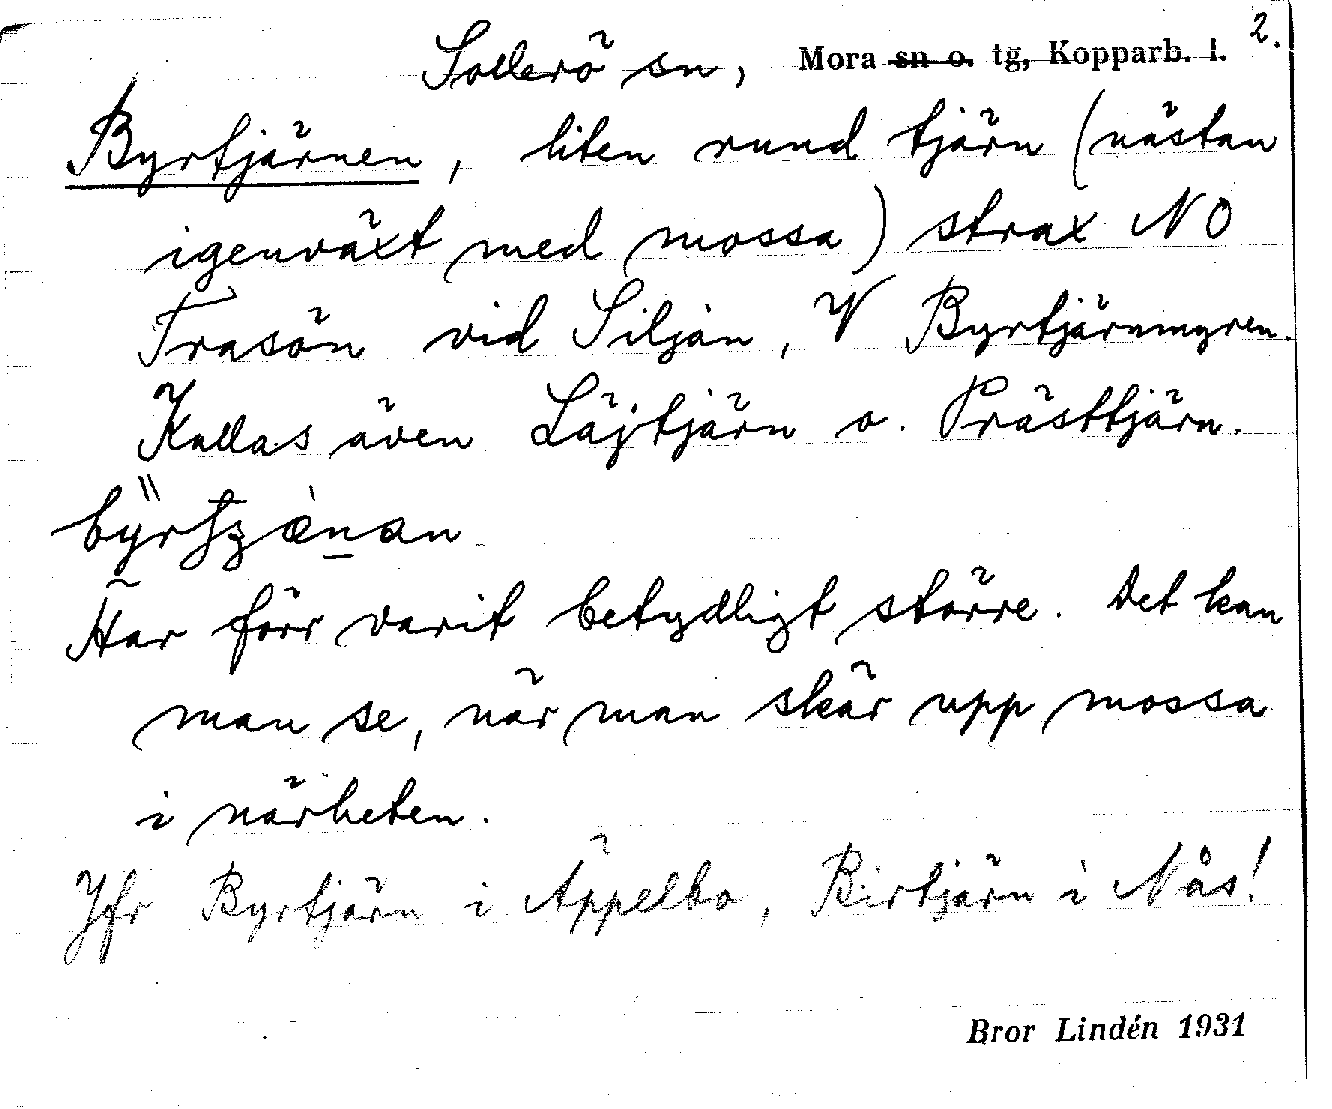 2.
Sollerö sn, Mora sn o. tg, Kopparb. l.
Byrtjärnen, liten rund tjärn (nästan
igenväxt med mossa) strax NO
Trasön vid Siljan, V Byrtjärnmyren.
Kallas även Läjtjärn o. Prästtjärn.
Har förr varit betydligt större. Det kan
man se, när man skär upp mossa
i närheten.
Jfr Byrtjärn i Äppelbo, Birtjärn i Nås!
Bror Lindén 1931